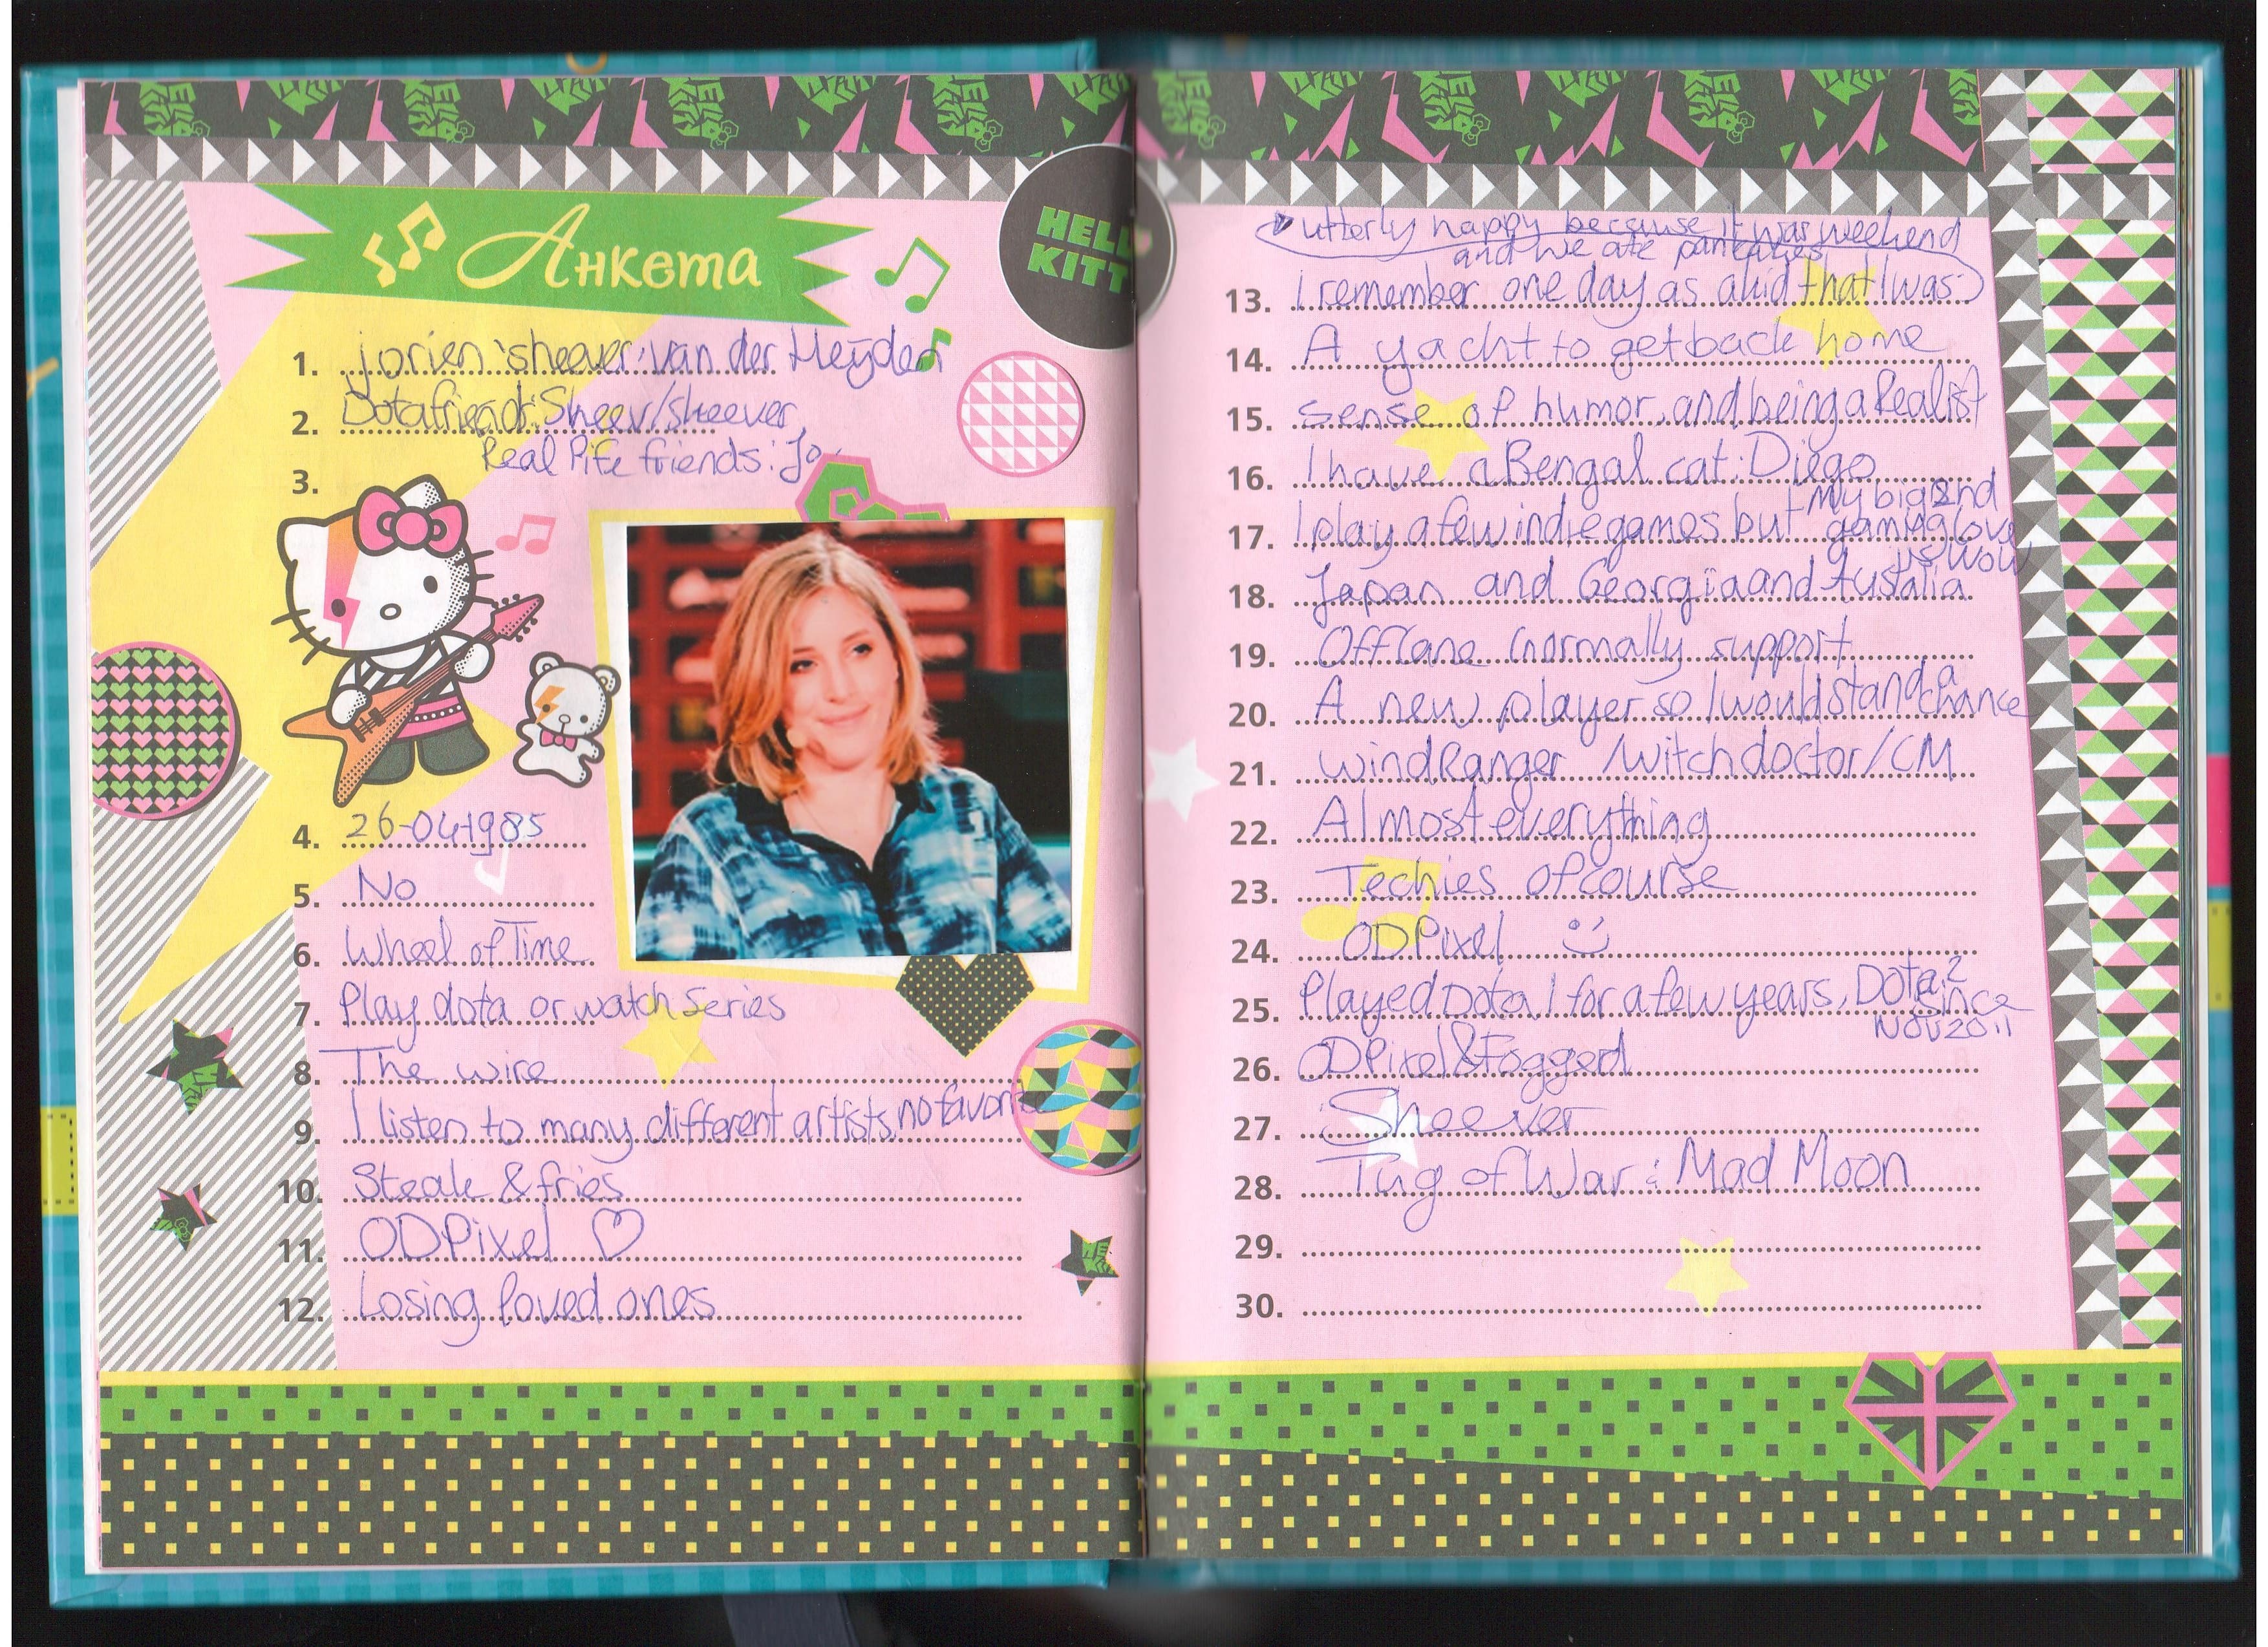 Анкета
HELLO KITTY
1. Jorien 'sheever' van der Heijden
2. Dota friend: Sheev/sheever,
Real life friends: Jo
3.
4. 26-04-1985
5. No
6. Wheel of Time
7. Play dota or watch series
8. The wire
9. I listen to many different artists, no favorite
10. Steak & fries
11. ODPixel ♡
12. Losing loved ones
utterly happy because it was weekend
and we ate pankakes
13. I remember one day as a kid that I was:
14. A yacht to get back home
15. sense of humor, and being a Realist
16. I have a Bengal cat: Diego
17. I play a few indie games but my big 2nd
gaming love
is WoW
18. Japan and Georgia and Australia
19. Offlane (normally support
20. A new player so I would stand a
chance
21. WindRanger /witchdoctor/CM
22. Almost everything
23. Techies ofcourse
24. ODPixel :)
25. Played Dota 1 for a few years, Dota 2
since
NOV 2011
26. ODPixel & Fogged
27. Sheever
28. Tug of War : Mad Moon
29.
30.